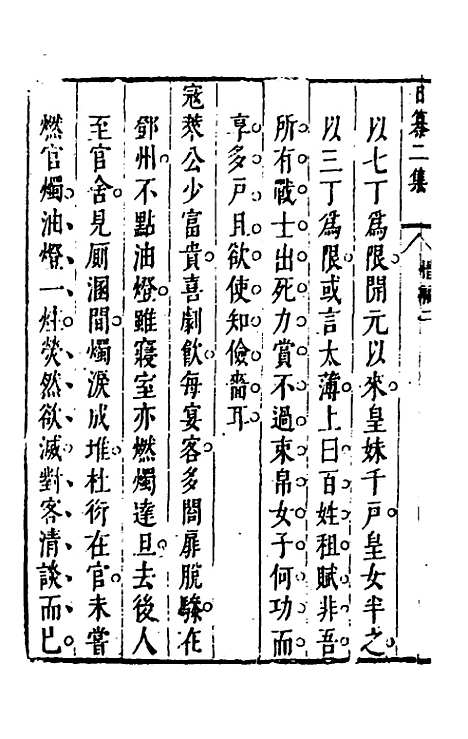 日纂二集
惜福二
以七丁為限開元以來皇妹千戶皇女半之
以三丁為限或言太薄上曰百姓租賦非吾
所有戰士出死力賞不過束帛女子何功而
享多戶且欲使知儉嗇耳
寇萊公少富貴喜劇飲每宴客多闔扉脫驂在
鄧州不點油燈雖寢室亦燃燭達旦去後人
至官舍見廁溷間燭淚成堆杜衍在官未嘗
燃官燭油燈一炷熒然欲滅對客清談而已